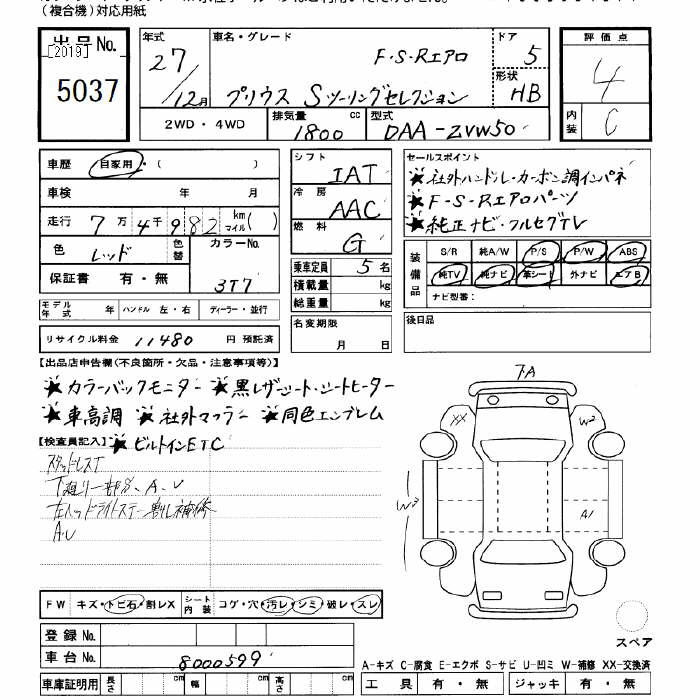 （複合機）対応用紙
出品No.
[2019]
5037
年式 車名・グレード ドア 評価点
27 F・S・Rエアロ 5
12月 プリウス Sツーリングセレクション 形状 HB 4
2WD・4WD 排気量 1800 cc 型式 DAA-ZVW50 内装 C
車歴 自家用・( )
車検 年 月
走行 7万4千982 km マイル( )
色 レッド 色替 カラーNo. 3T7
保証書 有・無
モデル年式 年 ハンドル 左・右 ディーラー・並行
リサイクル料金 11480 円 預託済
シフト IAT
冷房 AAC
燃料 G
乗車定員 5名
積載量 kg
総重量 kg
名変期限
月 日
セールスポイント
★社外ハンドル・カーボン調インパネ
★F・S・Rエアロパーツ
★純正ナビ・フルセグTV
装備品 S/R 純A/W P/S P/W ABS
純TV 純ナビ 革シート 外ナビ エアB
ナビ型番：
後日品
【出品店申告欄(不良箇所・欠品・注意事項等)】
★カラーバックモニター ★黒レザーシート・シートヒーター
★車高調 ★社外マフラー ★同色エンブレム
【検査員記入】 ★ビルトインETC
スタッドレスT
下廻り一部分、A、U
左ヘッドライトステー割レ補修
A・U
下A
XX W2
W2 A1
FW キズ・トビ石・割レX シート内装 コゲ・穴・汚レ・シミ・破レ・スレ
登録No.
車台No. 8000599
車庫証明用 長さ cm 幅 cm 高さ cm
スペア
A-キズ C-腐食 E-エクボ S-サビ U-凹ミ W-補修 XX-交換済
工具 有・無 ジャッキ 有・無